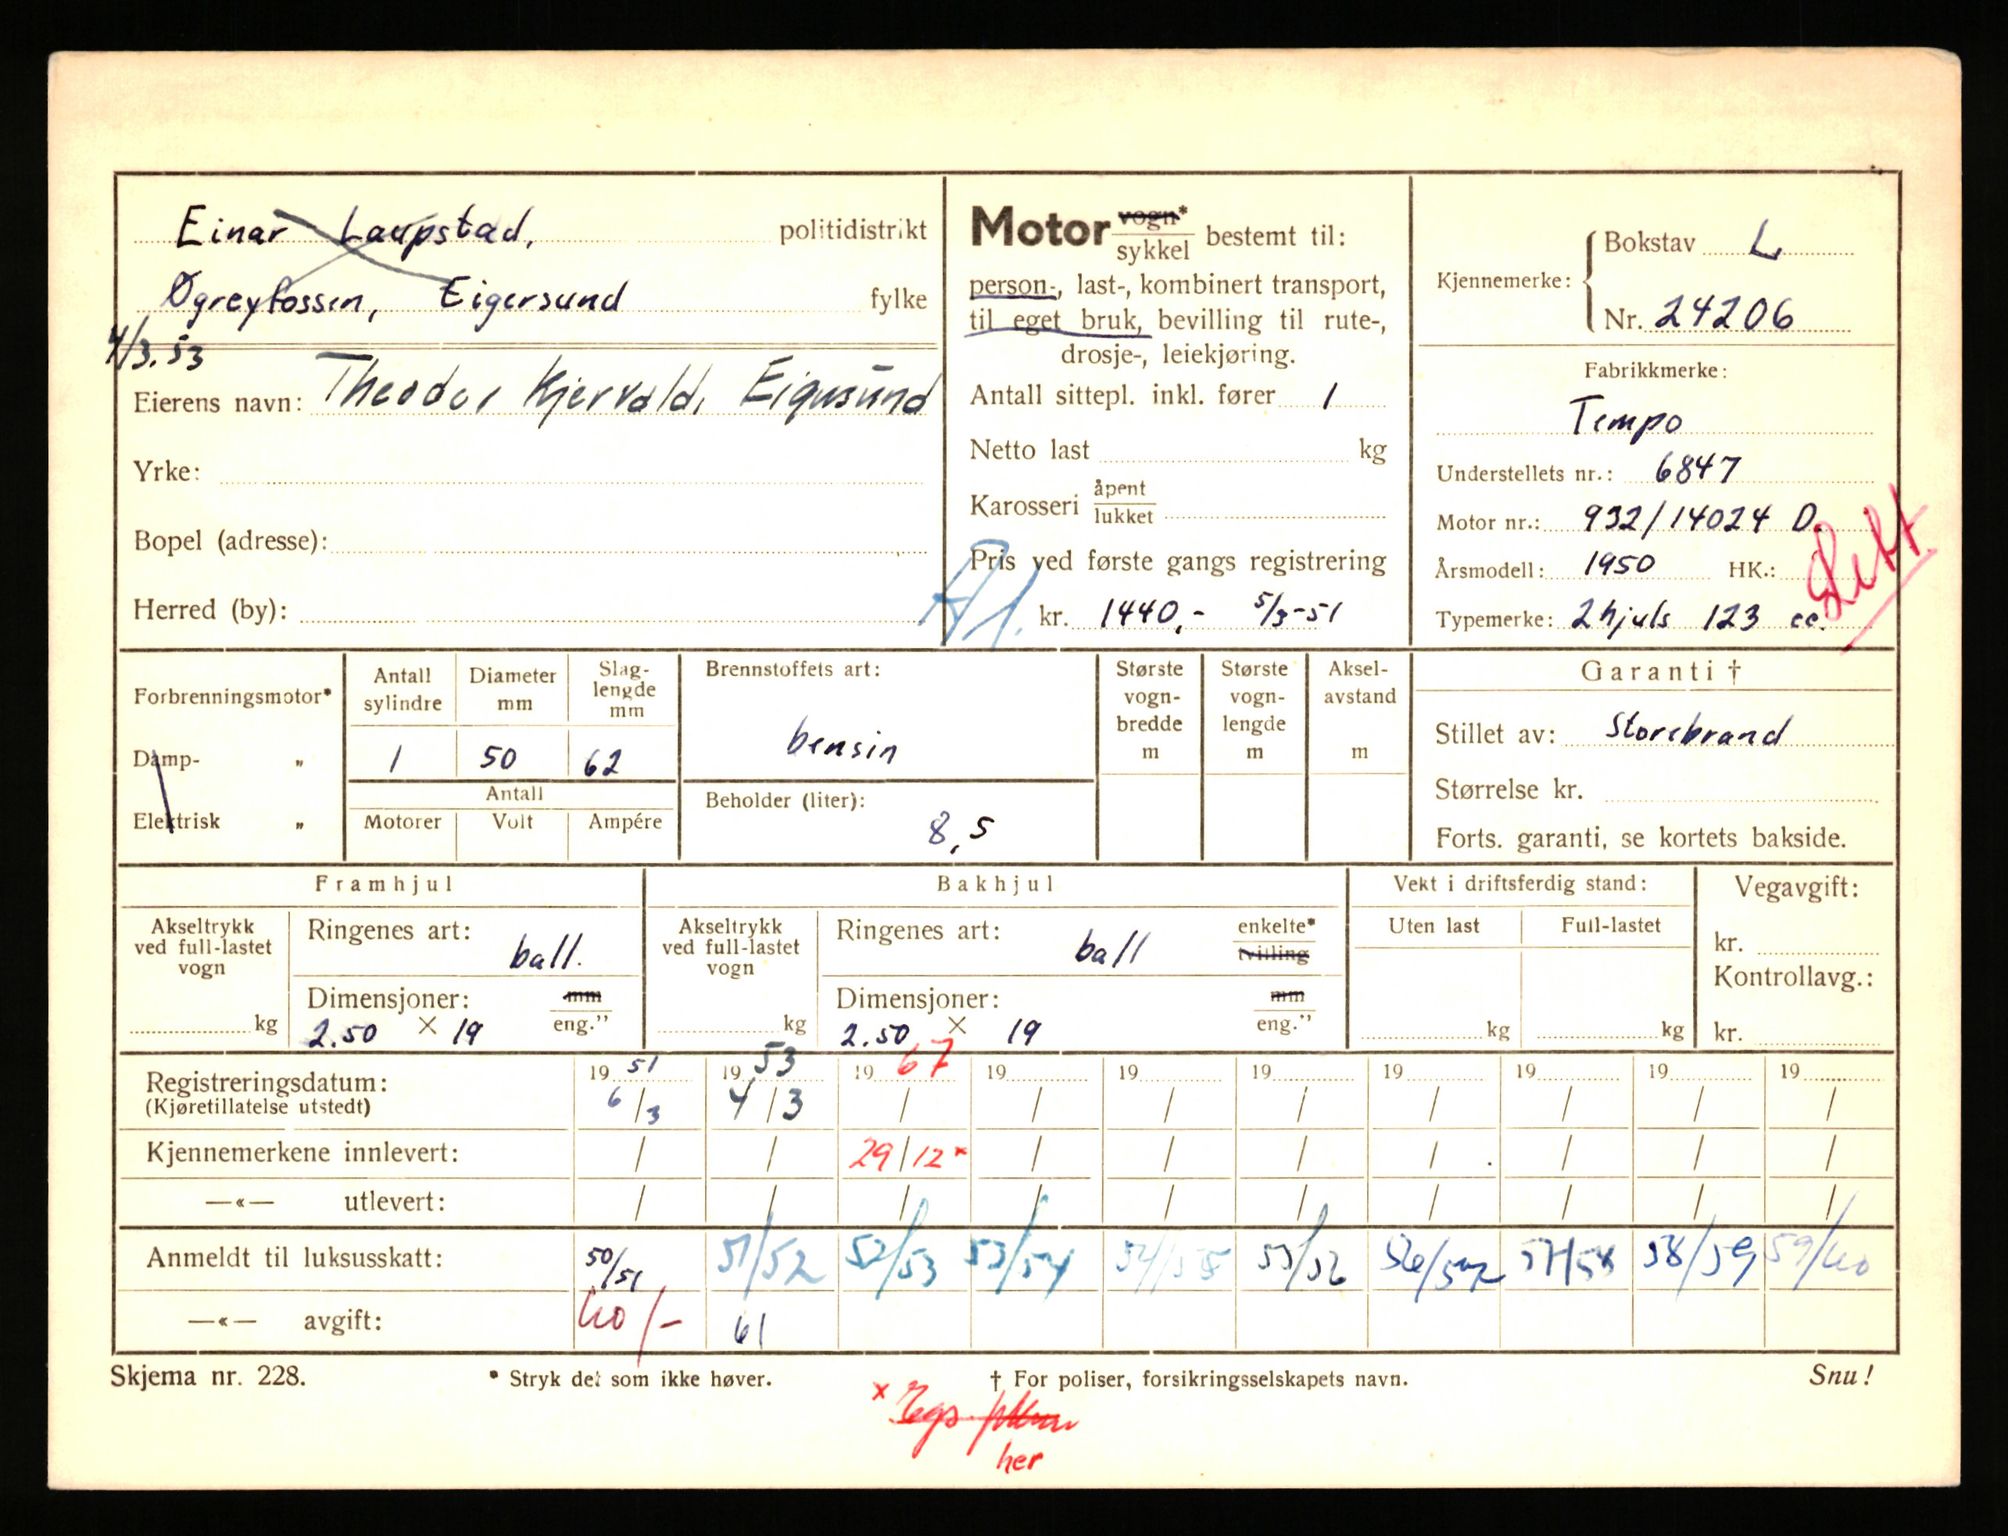 Einar Laupstad, politidistrikt
Øgreyfossen, Eigersund fylke
4/3.53
Eierens navn: Theodor Kjervold, Eigersund
Yrke:
Bopel (adresse):
Herred (by):
Motor vogn* sykkel bestemt til:
person-, last-, kombinert transport,
til eget bruk, bevilling til rute-,
drosje-, leiekjøring.
Antall sittepl. inkl. fører 1
Netto last kg
Karosseri åpent lukket
Pris ved første gangs registrering
kr. 1440,- 5/3-51
Kjennemerke: Bokstav L
Nr. 24206
Fabrikkmerke:
Tempo
Understellets nr.: 6847
Motor nr.: 932/14024 D.
Årsmodell: 1950 HK.:
Typemerke: 2 hjuls 123 cc.
Forbrenningsmotor*
Damp- „
Elektrisk „
Antall sylindre
Diameter mm
Slaglengde mm
1 50 62
Antall
Motorer Volt Ampére
Brennstoffets art:
bensin
Beholder (liter):
8,5
Største vognbredde m
Største vognlengde m
Akselavstand m
Garanti †
Stillet av: Storebrand
Størrelse kr.
Forts. garanti, se kortets bakside.
Framhjul
Akseltrykk ved full-lastet vogn kg
Ringenes art: ball.
Dimensjoner: mm eng.”
2.50 × 19
Bakhjul
Akseltrykk ved full-lastet vogn kg
Ringenes art: ball enkelte* tvilling
Dimensjoner: mm eng.”
2.50 × 19
Vekt i driftsferdig stand:
Uten last Full-lastet
kg kg
Vegavgift:
kr.
Kontrollavg.:
kr.
Registreringsdatum: 19 51 19 53 19 67 19 19 19 19 19 19 19
(Kjøretillatelse utstedt) 6/3 4/3 / / / / / / / /
Kjennemerkene innlevert: / / 29/12* / / / / / / /
—«— utlevert: / / / / / / / / / /
Anmeldt til luksusskatt: 50/51 51/52 52/53 53/54 54/55 55/56 56/57 57/58 58/59 59/60
—«— avgift: 60/- 61
Skjema nr. 228.
* Stryk det som ikke høver.
† For poliser, forsikringsselskapets navn.
Snu!
her